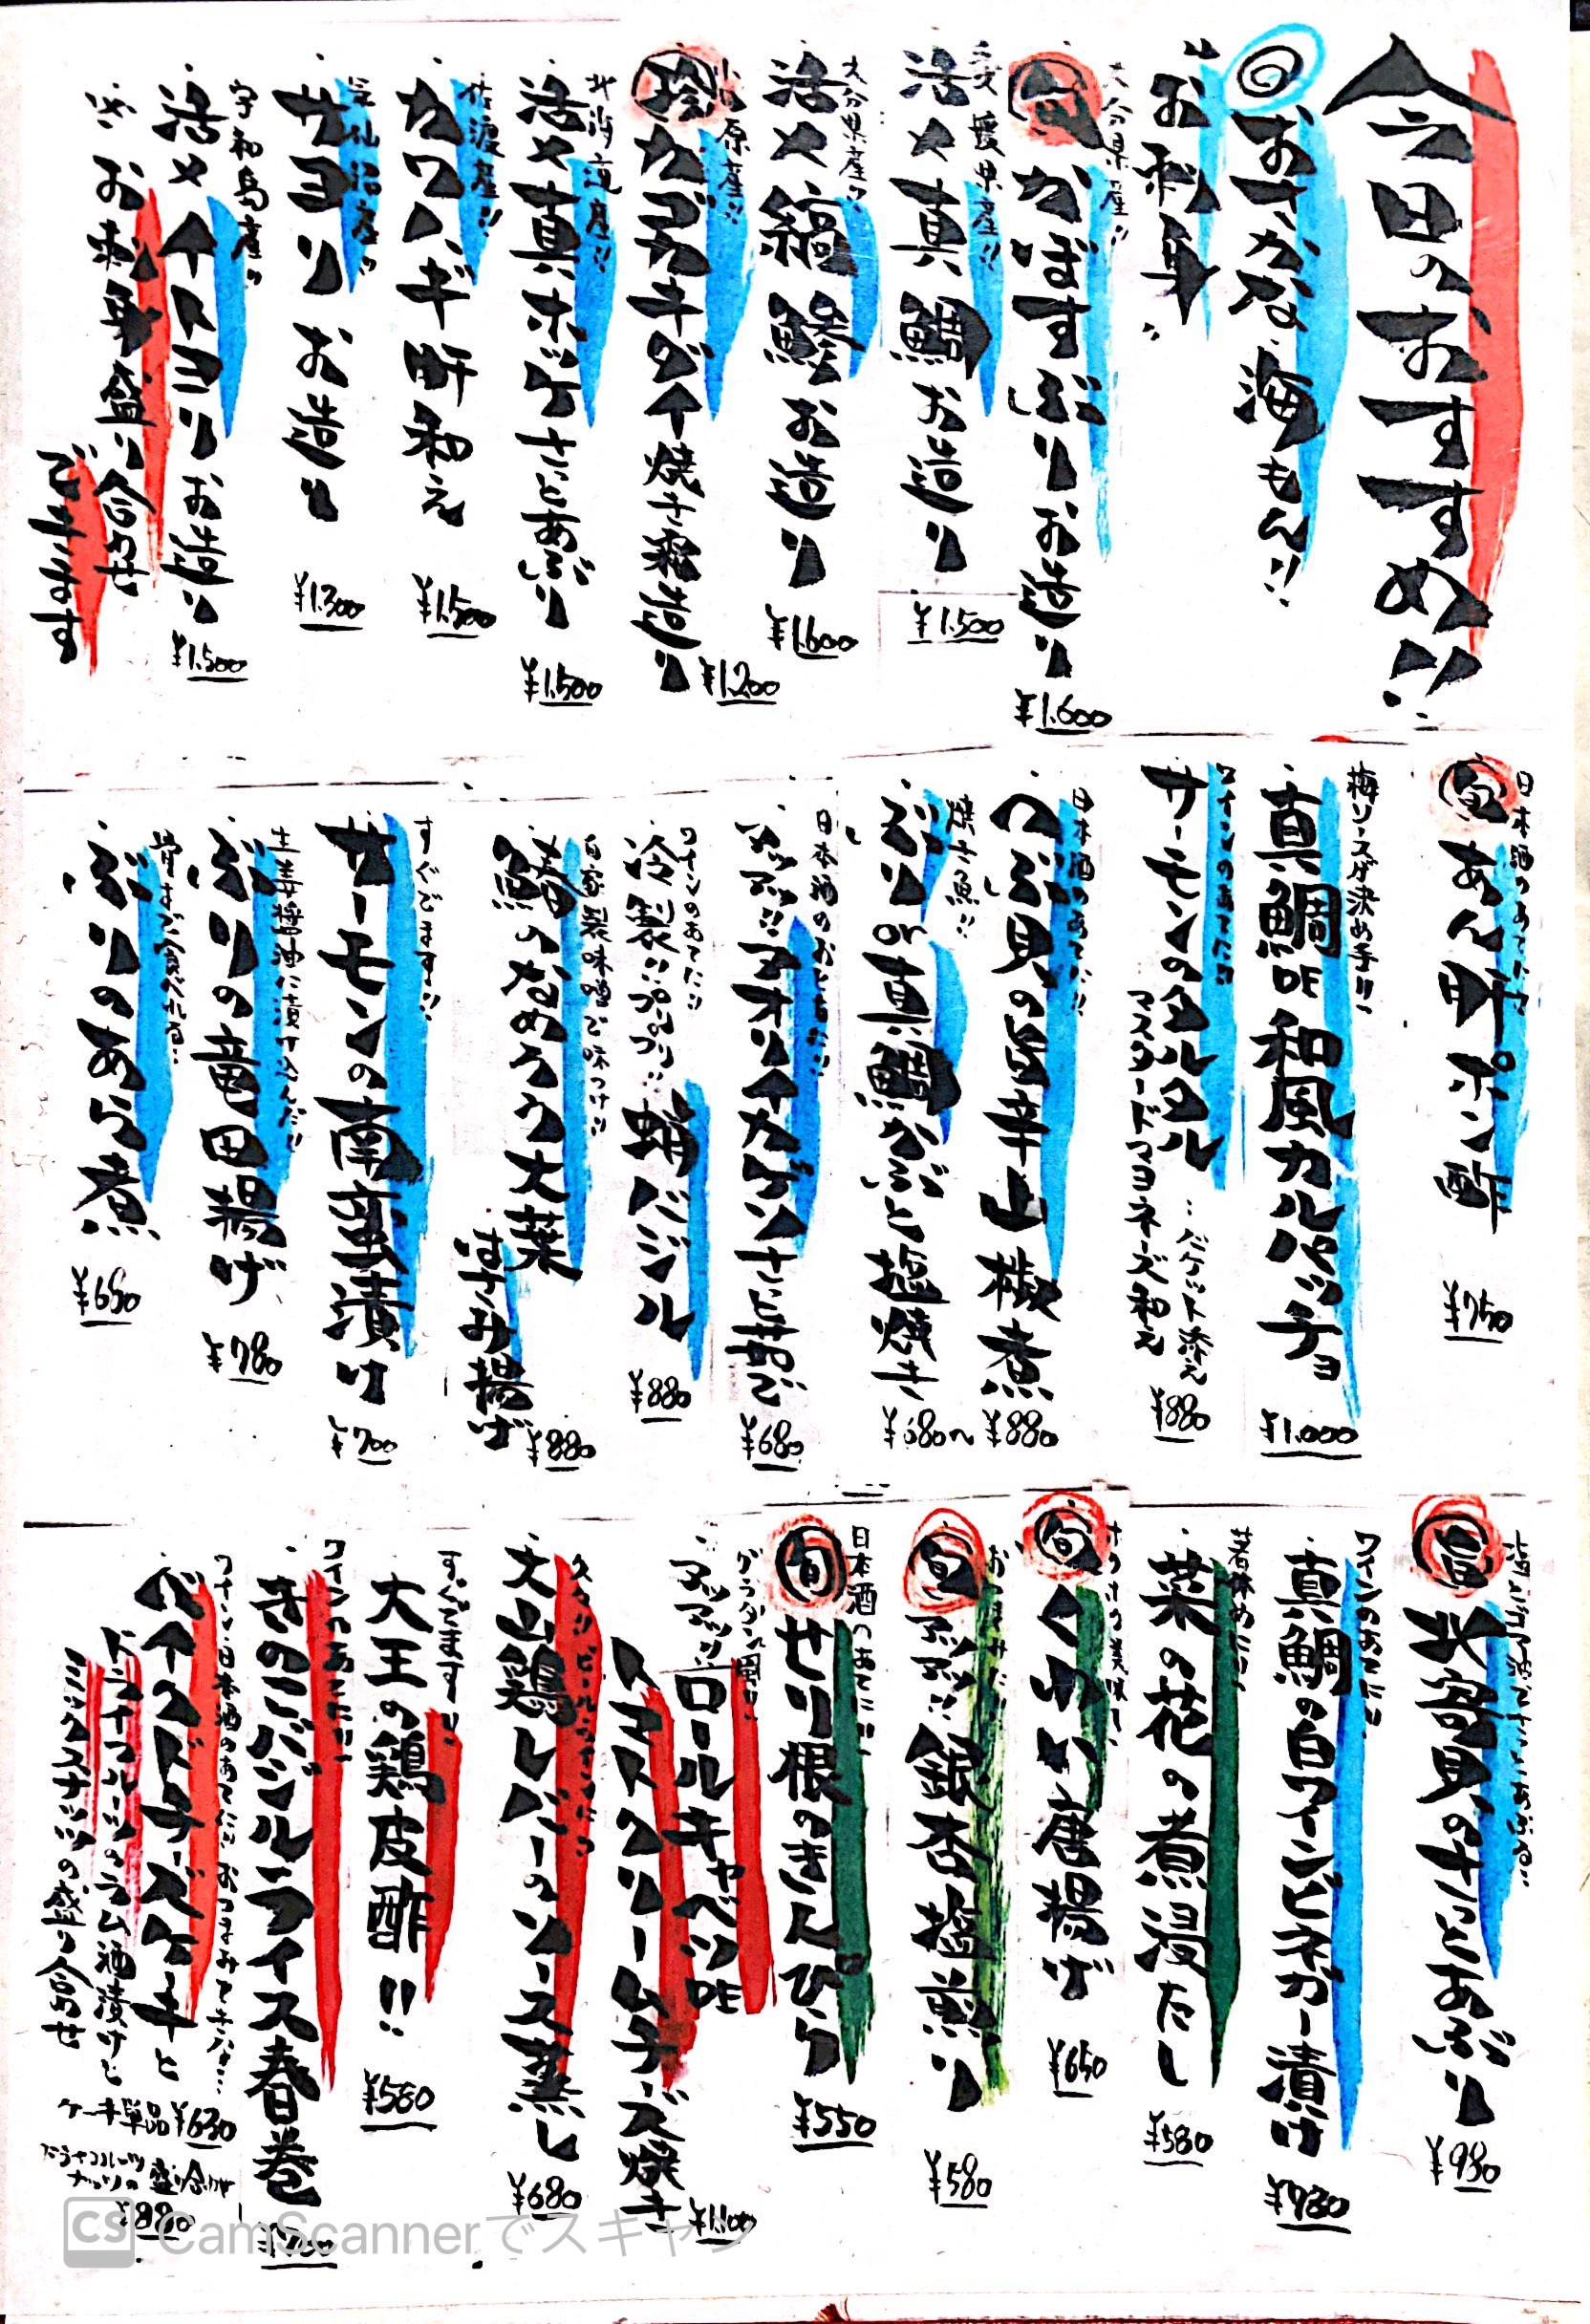 今日のおすすめ!!
おさかな海もん!!
お刺身
大分県産!!
旬 かぼすぶりお造り
¥1.600
愛媛県産!!
活〆真鯛お造り
¥1.500
大分県産!!
活〆縞鯵お造り
¥1.600
カゴカキダイ焼き霜造り
¥1.200
北海道産!!
活〆真ホッケさっとあぶり
¥1.500
佐渡産!!
カワハギ肝和え
¥1.500
気仙沼産!!
サヨリお造り
¥1.300
宇和島産!!
活〆イトヨリお造り
¥1.500
お刺身盛り合わせ
できます
日本酒のあてに!!
旬 あん肝ポン酢
¥750
梅ソースが決め手!!
真鯛の和風カルパッチョ
¥1.000
ワインのあてに!!
サーモンのタルタル
…バケット添え
マスタードマヨネーズ和え
¥880
日本酒のあてに!!
つぶ貝の旨辛山椒煮
¥880
焼き魚!!
ぶり or 真鯛かぶと塩焼き
¥680〜
日本酒のおともに!!
アツアツ!!アオリイカゲソさっと茹で
¥680
ワインのあてに!!
冷製!!プリプリ!!蛸バジル
¥880
自家製味噌で味つけ!!
鯵のなめろう大葉
はさみ揚げ
¥880
すぐでます!!
サーモンの南蛮漬け
¥700
生姜醤油に漬け込んだ!!
ぶりの竜田揚げ
¥780
骨まで食べれる!!
ぶりのあら煮
¥680
北寄貝のさっとあぶり
¥980
ワインのあてに!!
真鯛の白ワインビネガー漬け
¥780
菜の花の煮浸たし
¥580
ホクホク美味!!
旬 くわい唐揚げ
¥650
おつまみに!!
旬 銀杏塩煎り
¥580
日本酒のあてに!!
旬 せり根のきんぴら
¥550
グラタン風!!
アツアツ!!ロールキャベツの
トマトクリームチーズ焼き
¥1.100
大山鶏レバーのソース蒸し
¥680
すぐでます!!
大王の鶏皮酢!!
¥580
ワインのあてに!!
きのこバジルライス春巻
ワイン、日本酒のあてに!!おつまみケーキ!!
ベイクドチーズケーキと
ドライフルーツのラム酒漬けと
ミックスナッツの盛り合わせ
ケーキ単品 ¥630
ドライフルーツ
ナッツの盛り合わせ
¥880
CS CamScannerでスキャン